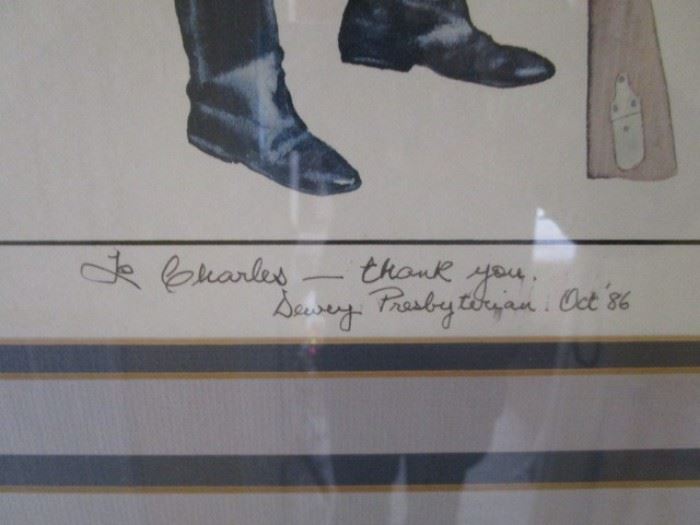 To Charles — thank you.
Dewey Presbyterian. Oct '86